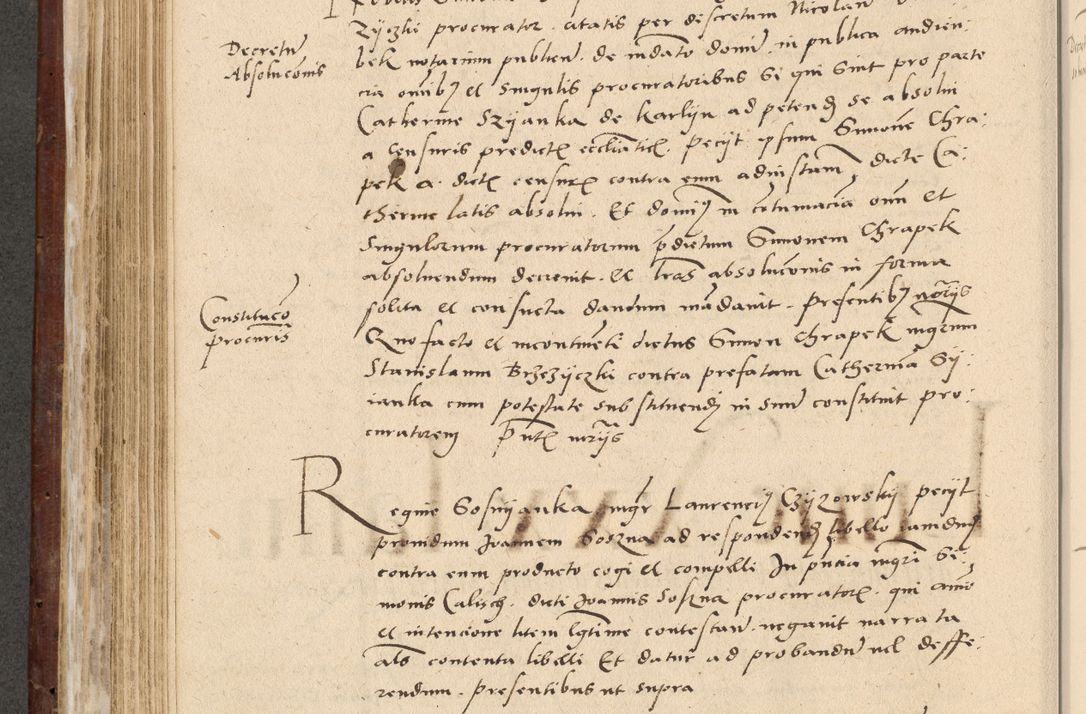 Decretu
Absoluconis
Zyczki procurator . citatis per discretum Nicolau
bek notarium publicu . de mdato domi . in publica audien
cia omib9 et singulis procuratoribus si qui sint pro parte
Catherine Szyanka de Karlyn ad petend se absolui
a censuris predict eccliastic . Pecyt ipsum Simone Chra
pek a dict censur contra eum ad instam dicte Ca
therine latis absolui . Et domi9 in cotumacia omi et
Singulorum procuratorum pdictum Simonem Chrapek
absoluendum decreuit . et lras absoluconis in forma
solita et consueta dandum madauit . Presentib9 notrijs
Constituco
procuris
Quo facto et incontineti dictus Simon Chrapek mgrum
Stanislaum Brzezyczki contra prefatam Catherina Sy
ianka cum potestate substituendi in suu constituit pro
curatorem Pnt notrijs
Regine Sosnyanka mgr Laurencij Czyzowskij pecyt
prouidum Joannem Soszna ad respondend libello tamdiu
contra eum producto cogi et compelli In pncia mgri Si
monis Calisch . dicti Joannis Soszna procurator . qui aio
et intencione litem lgtime contestan . negauit narrata
als contenta libelli Et datur ad probandu vel deffe
rendum . Presentibus ut supra